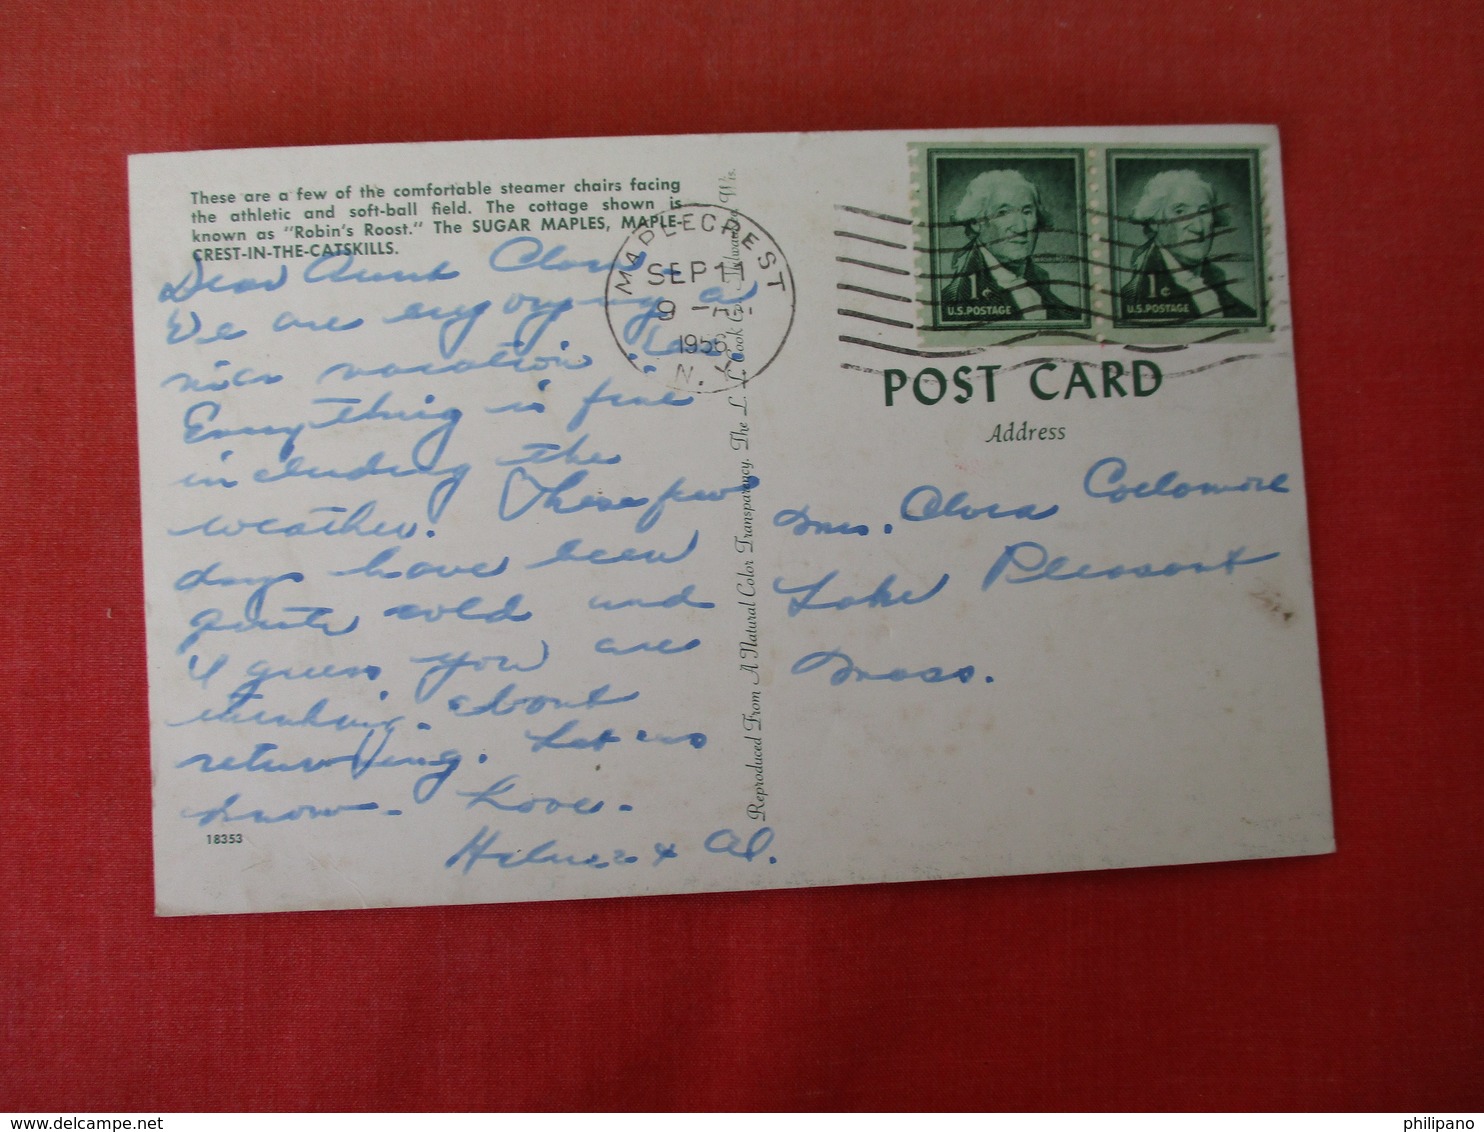 These are a few of the comfortable steamer chairs facing
the athletic and soft-ball field. The cottage shown is
known as "Robin's Roost." The SUGAR MAPLES, MAPLE-
CREST-IN-THE-CATSKILLS.
Dear Aunt Clara -
We are enjoying a
nice vacation here.
Everything is fine
including the
weather. These few
days have been
quite cold and
I guess you are
thinking about
returning. Let us
know - Love -
& Al.
18353
MAPLECREST
SEP 11
9 -AM
1956
N.Y.
Reproduced From A Natural Color Transparency. The L. L. Cook Co. Milwaukee, Wis.
1¢
U.S. POSTAGE
1¢
U.S. POSTAGE
POST CARD
Address
Mrs. Clara
Lake Pleasant
Mass.
philipano